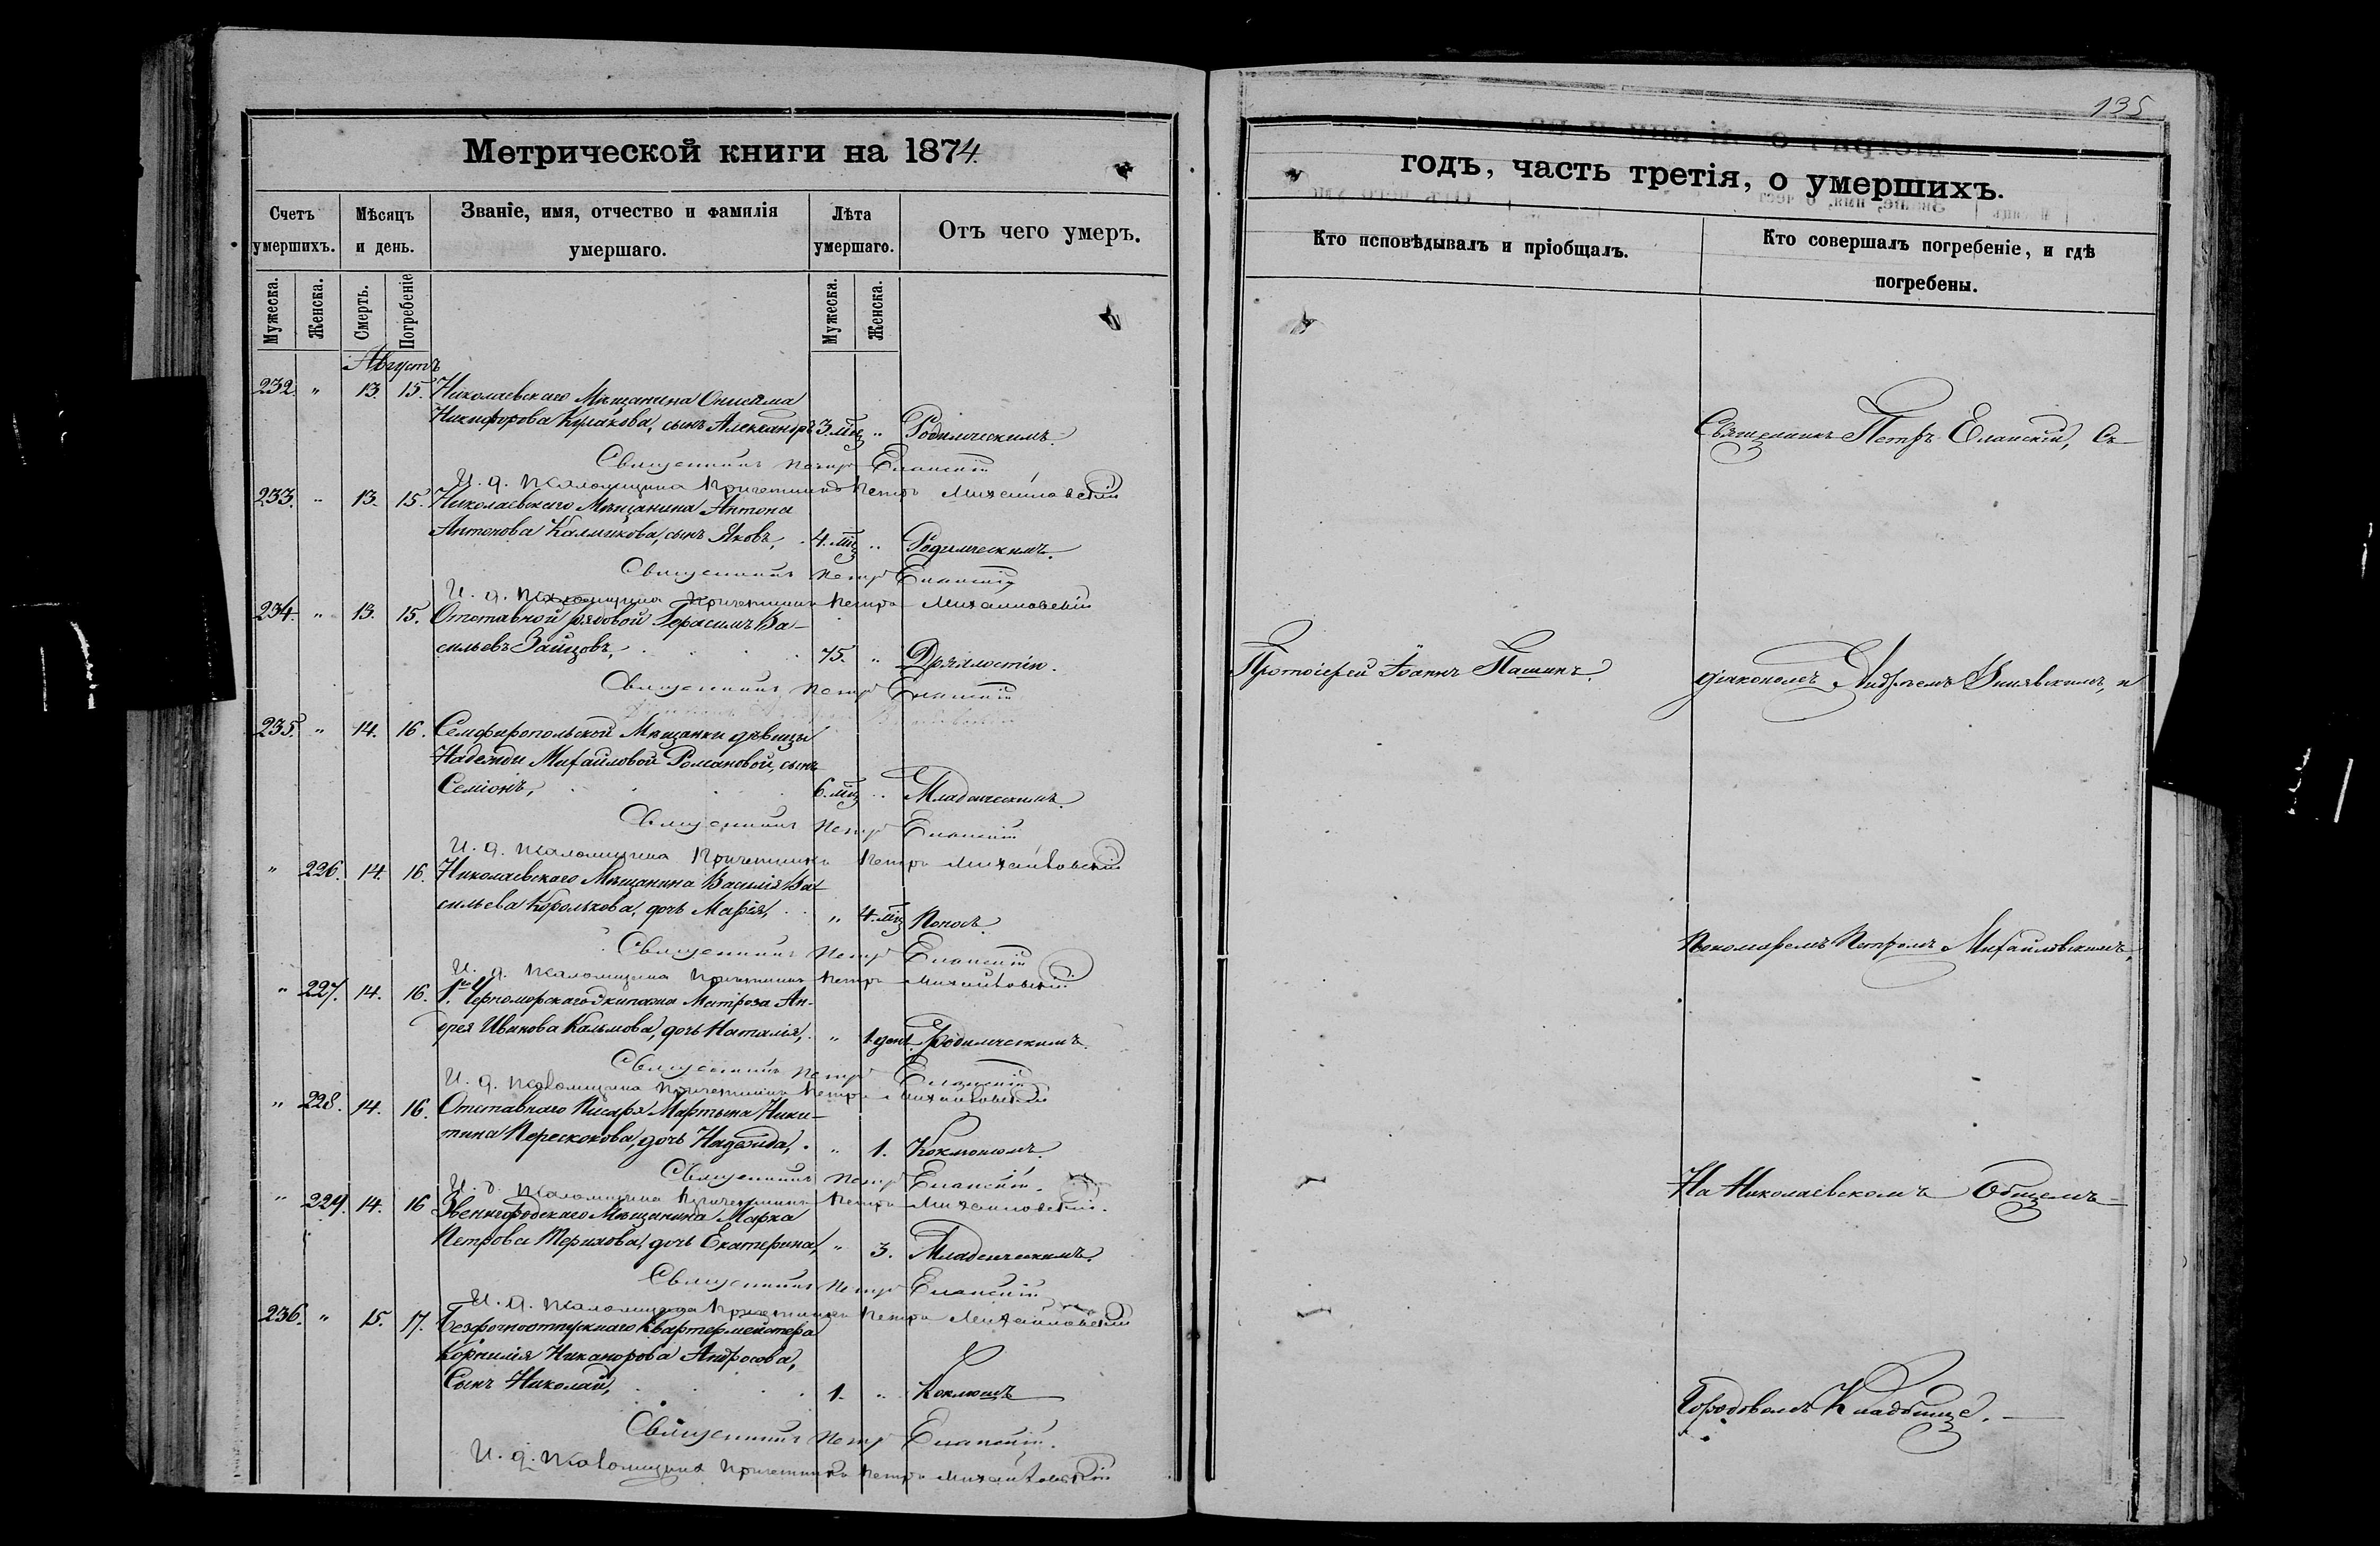 135
Метрической книги на 1874
годъ, часть третія, о умершихъ.
Счетъ умершихъ.
Мѣсяцъ и день.
Званіе, имя, отчество и фамилія умершаго.
Лѣта умершаго.
Отъ чего умеръ.
Кто исповѣдывалъ и пріобщалъ.
Кто совершалъ погребеніе, и гдѣ погребены.
Мужеска.
Женска.
Смерть.
Погребеніе
Мужеска.
Женска.
Августъ
232. " 13. 15. Николаевскаго Мѣщанина Онисима
Никифорова Кулакова, сынъ Александръ 3. мѣц " Родимческимъ.
Священникъ Петръ Еланскій
И. д. Псаломщика Причетникъ Петръ Михайловскій
233. " 13. 15. Николаевскаго Мѣщанина Антона
Антонова Калмикова, сынъ Яковъ, 4. мѣц " Родимческимъ.
Священникъ Петръ Еланскій
И. д. Псаломщика Причетникъ Петръ Михайловскій
234. " 13. 15. Отставной рядовой Герасимъ Ва-
сильевъ Зайцовъ, 75. " Дряхлостію.
Священникъ Петръ Еланскій
235. " 14. 16. Семферопольской Мѣщанки дѣвицы
Надежди Михайловой Романовой, сынъ
Семіонъ, 6. мѣц " Младенческимъ.
Священникъ Петръ Еланскій
И. д. Псаломщика Причетникъ Петръ Михайловскій
" 226. 14. 16. Николаевскаго Мѣщанина Василія Ва-
сильева Королькова, дочь Марія, " 4. мѣц Поносъ.
Священникъ Петръ Еланскій
И. д. Псаломщика Причетникъ Петръ Михайловскій
" 227. 14. 16. 1го Черноморскаго Экипажа Матроза Ан-
дрея Иванова Калмова, дочь Наталія, " 1 день. Родимческимъ.
Священникъ Петръ Еланскій
И. д. Псаломщика Причетникъ Петръ Михайловскій
" 228. 14. 16. Отставнаго Писаря Мартына Ники-
тина Перескокова, дочь Надежда, " 1. Коклюшомъ.
Священникъ Петръ Еланскій.
И. д. Псаломщика Причетникъ Петръ Михайловскій.
" 229. 14. 16 Звенигородскаго Мѣщанина Марка
Петрова Терихова, дочь Екатерина, " 3. Младенческимъ.
Священникъ Петръ Еланскій
И. д. Псаломщика Причетникъ Петръ Михайловскій
236. " 15. 17. Безсрочноотпускнаго Квартермейстера
Корнилія Никанорова Андросова,
Сынъ Николай, 1. " Коклюшъ
Священникъ Петръ Еланскій.
И. д. Псаломщика Причетникъ Петръ Михайловскій
Протоіерей Іоаннъ Пашинъ.
Священникъ Петръ Еланскій, Съ
діакономъ Андреемъ, и
Пономаремъ Петромъ Михайловскимъ,
На Николаевскомъ Общемъ
Городовомъ Кладбище.